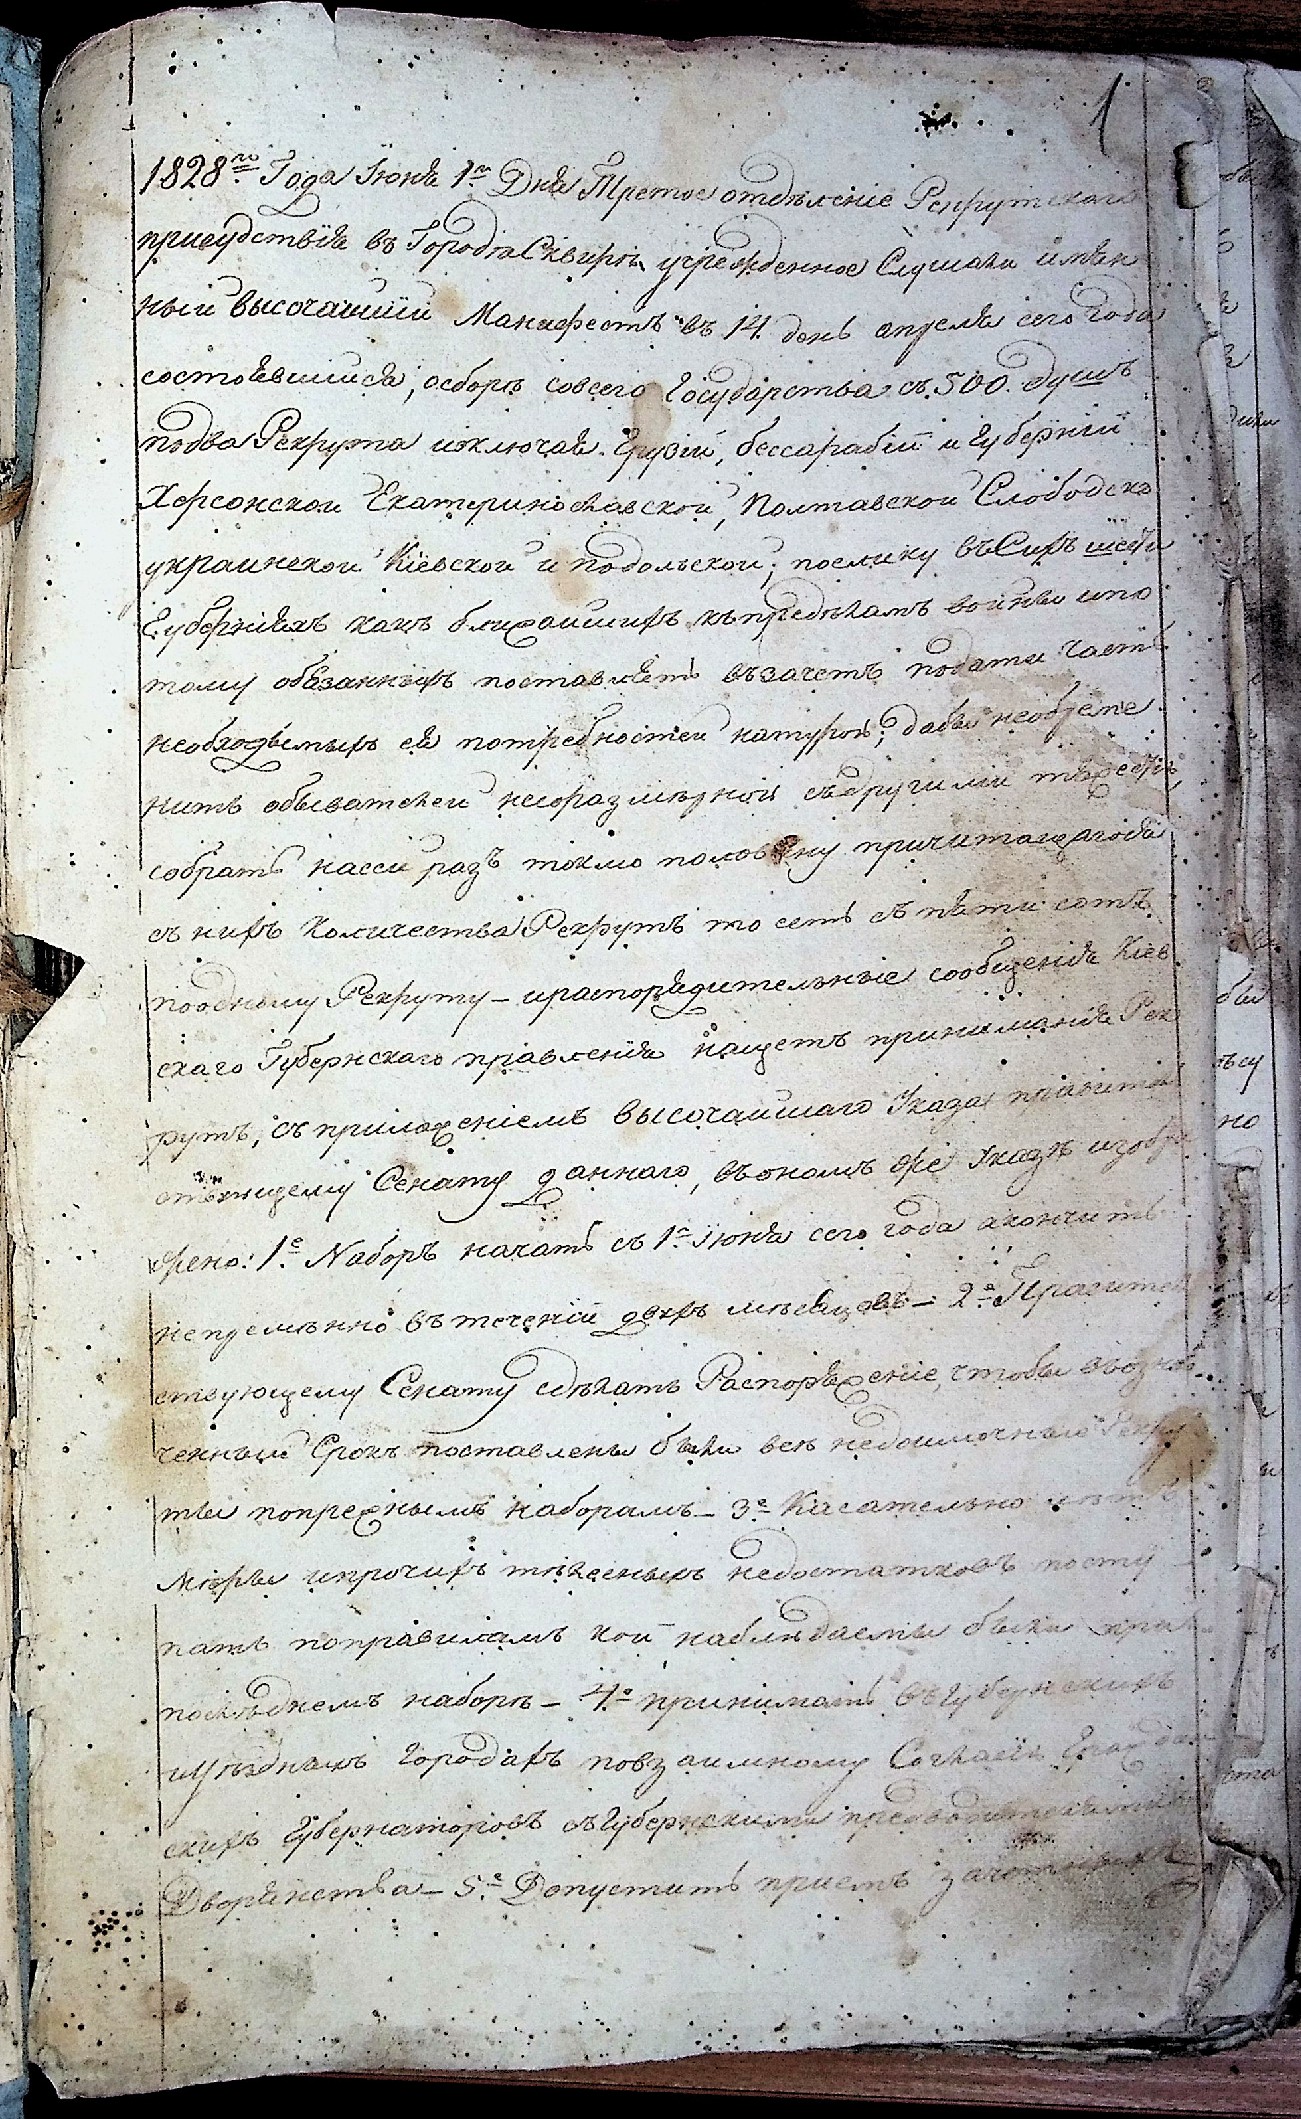 1
1828го Года Іюня 1го Дня Третое отдѣленіе Рекрутскаго
присудствія въ Городѣ Сквирѣ учрежденное Слушали имян
ный высочайшій Манифестъ въ 14 день апреля сего года
состоявшійся, осборѣ совсего Государства съ 500. душъ
подва Рекрута изключая Грузій, бессарабій и Губерній
Херсонской Екатеринославской, Полтавской Слободско
украинской Кіевской и подольской, поелику въСихъ шести
Губерніяхъ какъ ближаишихъ къпредѣламъ войны ипо
тому обязанныхъ поставлять взачетъ подати часть
необходымыхъ ея потребностей натурою, дабы необреме
нить обывателей несоразмѣрной сдругими тяжестію
собрать насеи разъ токмо половину причитающагося
съ нихъ Количества Рекрутъ то есть съ пяти сотъ
поодному Рекруту – ираспорядительные сообщенія Кіев
скаго Губернскаго правленія нащетъ приниманія Рек
рутъ, съ приложеніемъ высочайшаго Указа правитель
ствующему Сенату даннаго, въономъ же Указѣ изобра
жено: 1е Наборъ начать съ 1го Іюня сего года акончить
непремѣнно втеченіи двухъ мѣсяцовъ – 2е Правитель
ствующему Сенату сдѣлать Распоряженіе, чтобы взозна
ченный Срокъ поставлены были всѣ недоимочные Рекру
ты попрежнымъ наборамъ – 3е Касательно лѣтъ
мѣры ипрочихъ тѣлесныхъ недостатковъ посту
пать поправиламъ кои наблюдаемы были при
послѣднемъ наборѣ – 4е принимать въГубернскихъ
иуѣздныхъ городахъ повзаимному Согласію Граждан
скихъ Губернаторовъ съГубернскими предводителями
Дворянства – 5е Допустить пріемъ зачетныхъ